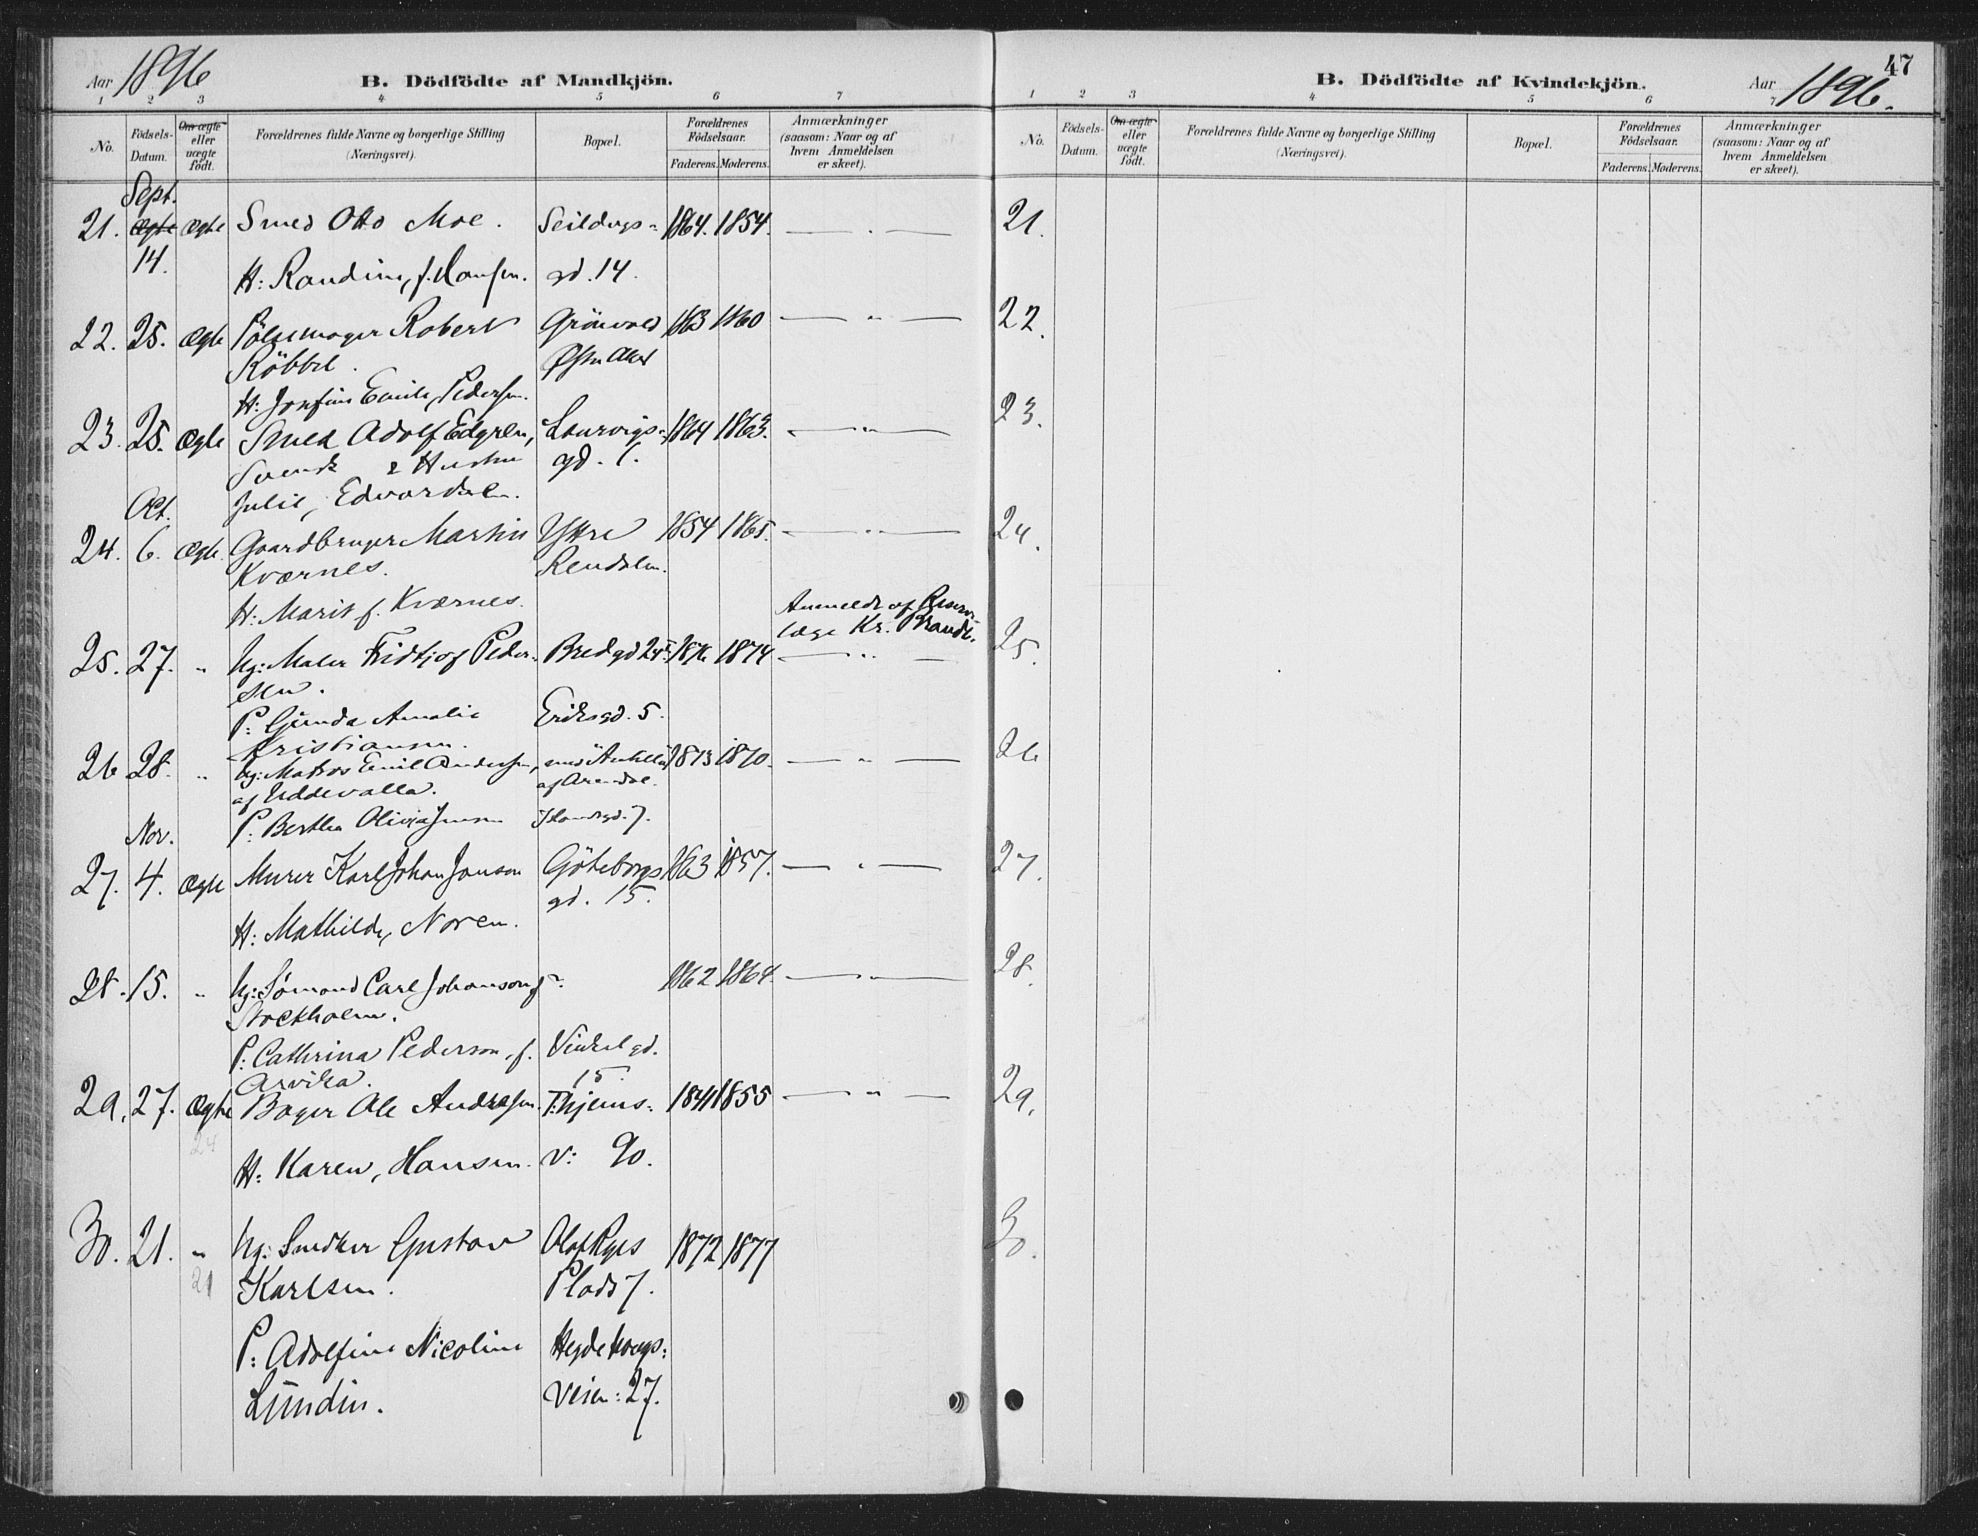 Aar 1896 B. Dödfödte af Mandkjön.
1 2 3 4 5 6 7
No. Födsels-Datum. Om ægte eller uægte födt. Forældrenes fulde Navne og borgerlige Stilling (Næringsvei). Bopæl. Forældrenes Födselsaar. Faderens. Moderens. Anmærkninger (saasom: Naar og af hvem Anmeldelsen er skeet).
Sept.
21. Ægte Ægte Smed Otto Moe. Seildugs- 1864. 1854.
14. H: Randine, f. Hansen. gd. 14.
22. 25. Ægte Pölsemager Robert Grönvold 1863 1860 — " —
Röbbel. Østre Aker
H: Josefine Emilie, Pedersen.
23. 25. Ægte Smed Adolf Edgren, Laurvigs- 1864 1863. — " —
Svensk & Hustru gd.
Julie, Edvardsen.
Oct.
24. 6. Ægte. Gaardbruger Martin Yttre 1854 1865. — " —
Kværnes. Rendalen.
H: Marit f. Kværnes.
Anmeldt af Reserve-
læge Kr. Brandt.
25. 27. " Ug: Maler Fridtjof Peder- Bredgd 24 1876 1874 — " —
sen.
P: Gunda Amalie Eriksgd. 5.
Kristiansen.
26 28. " Ug: Matros Emil Andersen, 1873 1870. — " —
af Uddevalla. af Arendal.
P: Bertha Olivia Jensen 7.
Nov.
27. 4. Ægte Murer Karl Johan Jonson Göteborgs 1863 1857. — " —
gd. 15.
H: Mathilde, Noren.
28. 15. " Ug: Sømand Carl Johanson f ? 1862 1864. — " —
Stockholm.
P: Cathrina Pederson, f. Vinkelgd.
Arvika. 15.
29. 27. Ægte Bager Ole Andresen. T:hjems- 1841 1855 — " —
24
H: Karen, Hansen. v: 90.
30. 21. " Ug: Snedker Gustav Olaf Ryes 1872 1877
21 Karlsen. Plads 7.
P: Adolfine Nicoline Hegdehaugs:
Lundin. Veien: 27.
47
B. Dödfödte af Kvindekjön. Aar 1896.
1 2 3 4 5 6 7
No. Födsels-Datum. Om ægte eller uægte födt. Forældrenes fulde Navne og borgerlige Stilling (Næringsvei). Bopæl. Forældrenes Födselsaar. Faderens. Moderens. Anmærkninger (saasom: Naar og af hvem Anmeldelsen er skeet).
21.
22.
23.
24.
25.
26
27.
28.
29.
30.